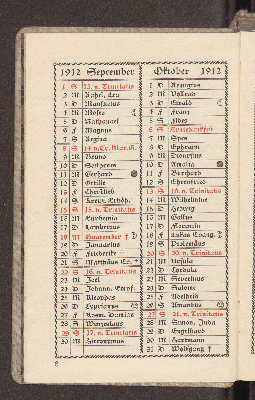 1912 September
1 S 13. n. Trinitatis
2 M Rahel, Lea
3 D Mansuetus
4 M Moses
5 D Nathanael
6 F Magnus
7 S Regina
8 S 14. n. Tr. Mar. G.
9 M Bruno
10 D Sosthenes
11 M Gerhard
12 D Ottilie
13 F Christlieb
14 S Kreuz. Erhöh.
15 S 15. n. Trinitatis
16 M Euphemia
17 D Lambertus
18 M Quatember
19 D Januarius
20 F Friederike
21 S Matthäus Ev.
22 S 16. n. Trinitatis
23 M Joel
24 D Johann. Empf.
25 M Kleophas
26 D Cyprianus
27 F Kosm. Damian
28 S Wenzeslaus
29 S 17. n. Trinitatis
30 M Hieronymus
Oktober 1912
1 D Remigius
2 M Vollrad
3 D Ewald
4 F Franz
5 S Fides
6 S Erntedankfest
7 M Spes
8 D Ephraim
9 M Dionysius
10 D Amalia
11 F Burchard
12 S Ehrenfried
13 S 19. n. Trinitatis
14 M Wilhelmine
15 D Hedwig
16 M Gallus
17 D Florentin
18 F Lukas Evang.
19 S Ptolemäus
20 S 20. n. Trinitatis
21 M Ursula
22 D Cordula
23 M Severinus
24 D Salome
25 F Adelheid
26 S Amandus
27 S 21. n. Trinitatis
28 M Simon, Juda
29 D Engelhard
30 M Hartmann
31 D Wolfgang